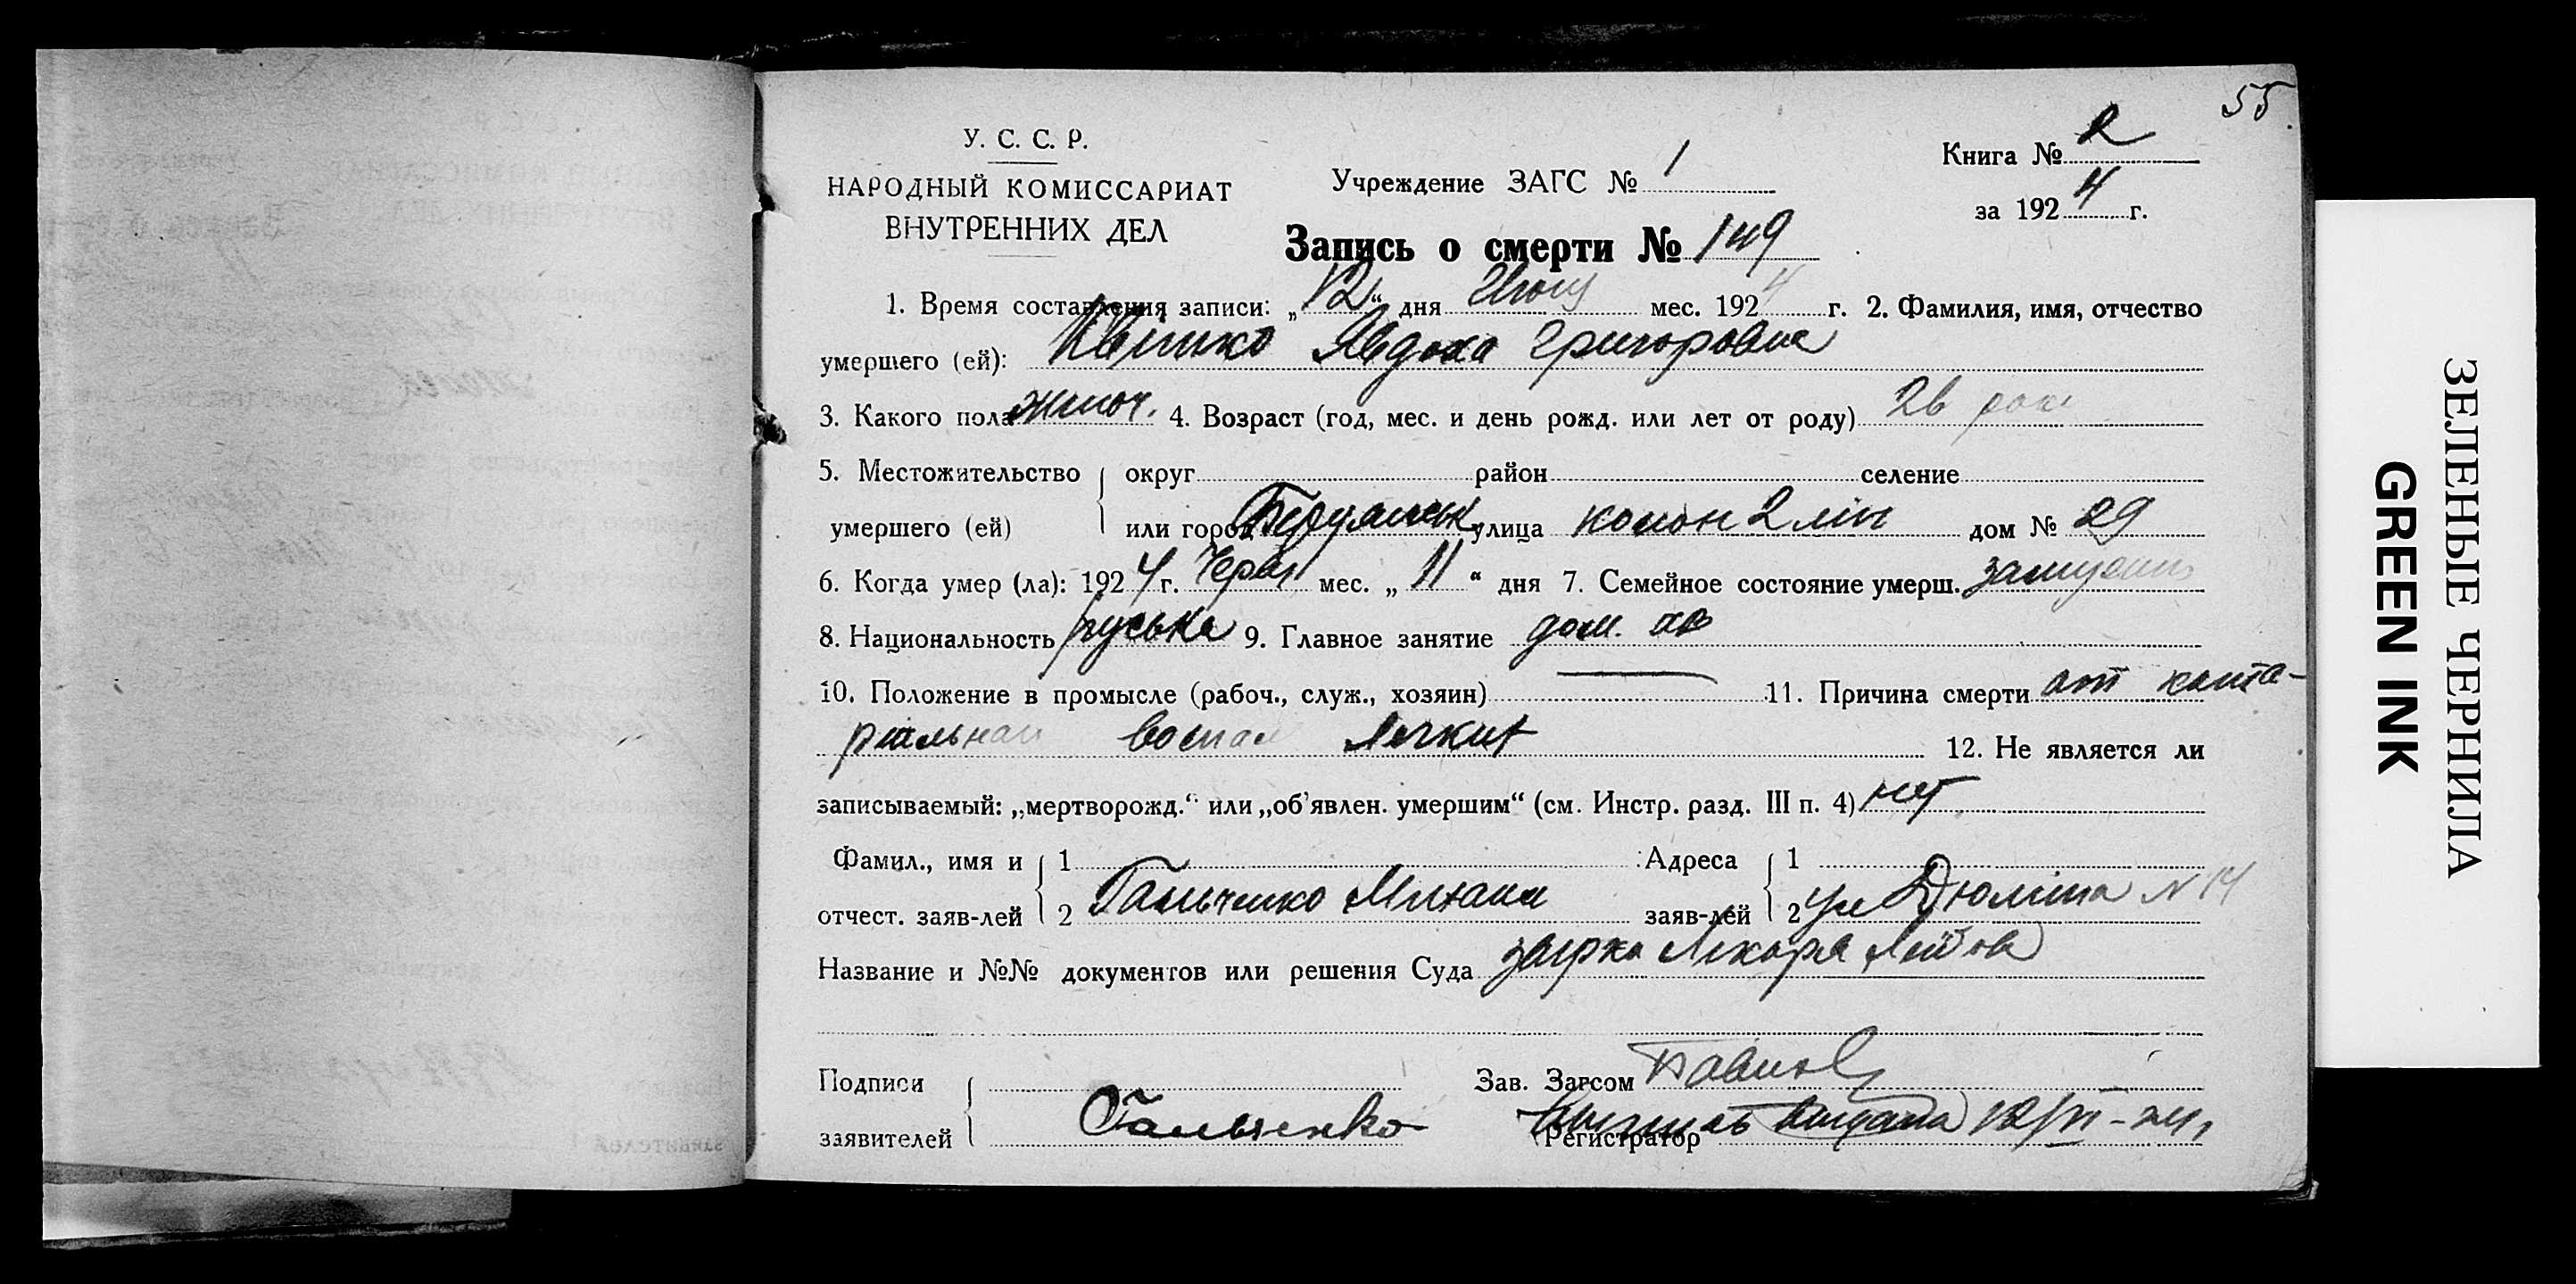 55
У. С. С. Р.
НАРОДНЫЙ КОМИССАРИАТ
ВНУТРЕННИХ ДЕЛ
Учреждение ЗАГС № 1
Книга № 2
за 1924 г.
Запись о смерти № 149
1. Время составления записи: „12“ дня мес. 1924 г. 2. Фамилия, имя, отчество
умершего (ей): Явдоха Григоровна
3. Какого пола жіноч. 4. Возраст (год, мес. и день рожд. или лет от роду) 26
5. Местожительство округ район селение
умершего (ей) или город Бердянськ улица колон 2 лін дом № 29
6. Когда умер (ла): 1924 г. Черв. мес. „11“ дня 7. Семейное состояние умерш. замужня
8. Национальность руська 9. Главное занятие дом.
10. Положение в промысле (рабоч., служ., хозяин) — 11. Причина смерти от
воспал Легких 12. Не является ли
записываемый: „мертворожд.“ или „об’явлен. умершим“ (см. Инстр. разд. III п. 4) нет
Фамил., имя и 1 Адреса 1
отчест. заяв-лей 2 Гальченко Михаил заяв-лей 2 ул N 14
Название и №№ документов или решения Суда Лекаря
Подписи Зав. Загсом
заявителей Гальченко Регистратор
ЗЕЛЕНЫЕ ЧЕРНИЛА
GREEN INK